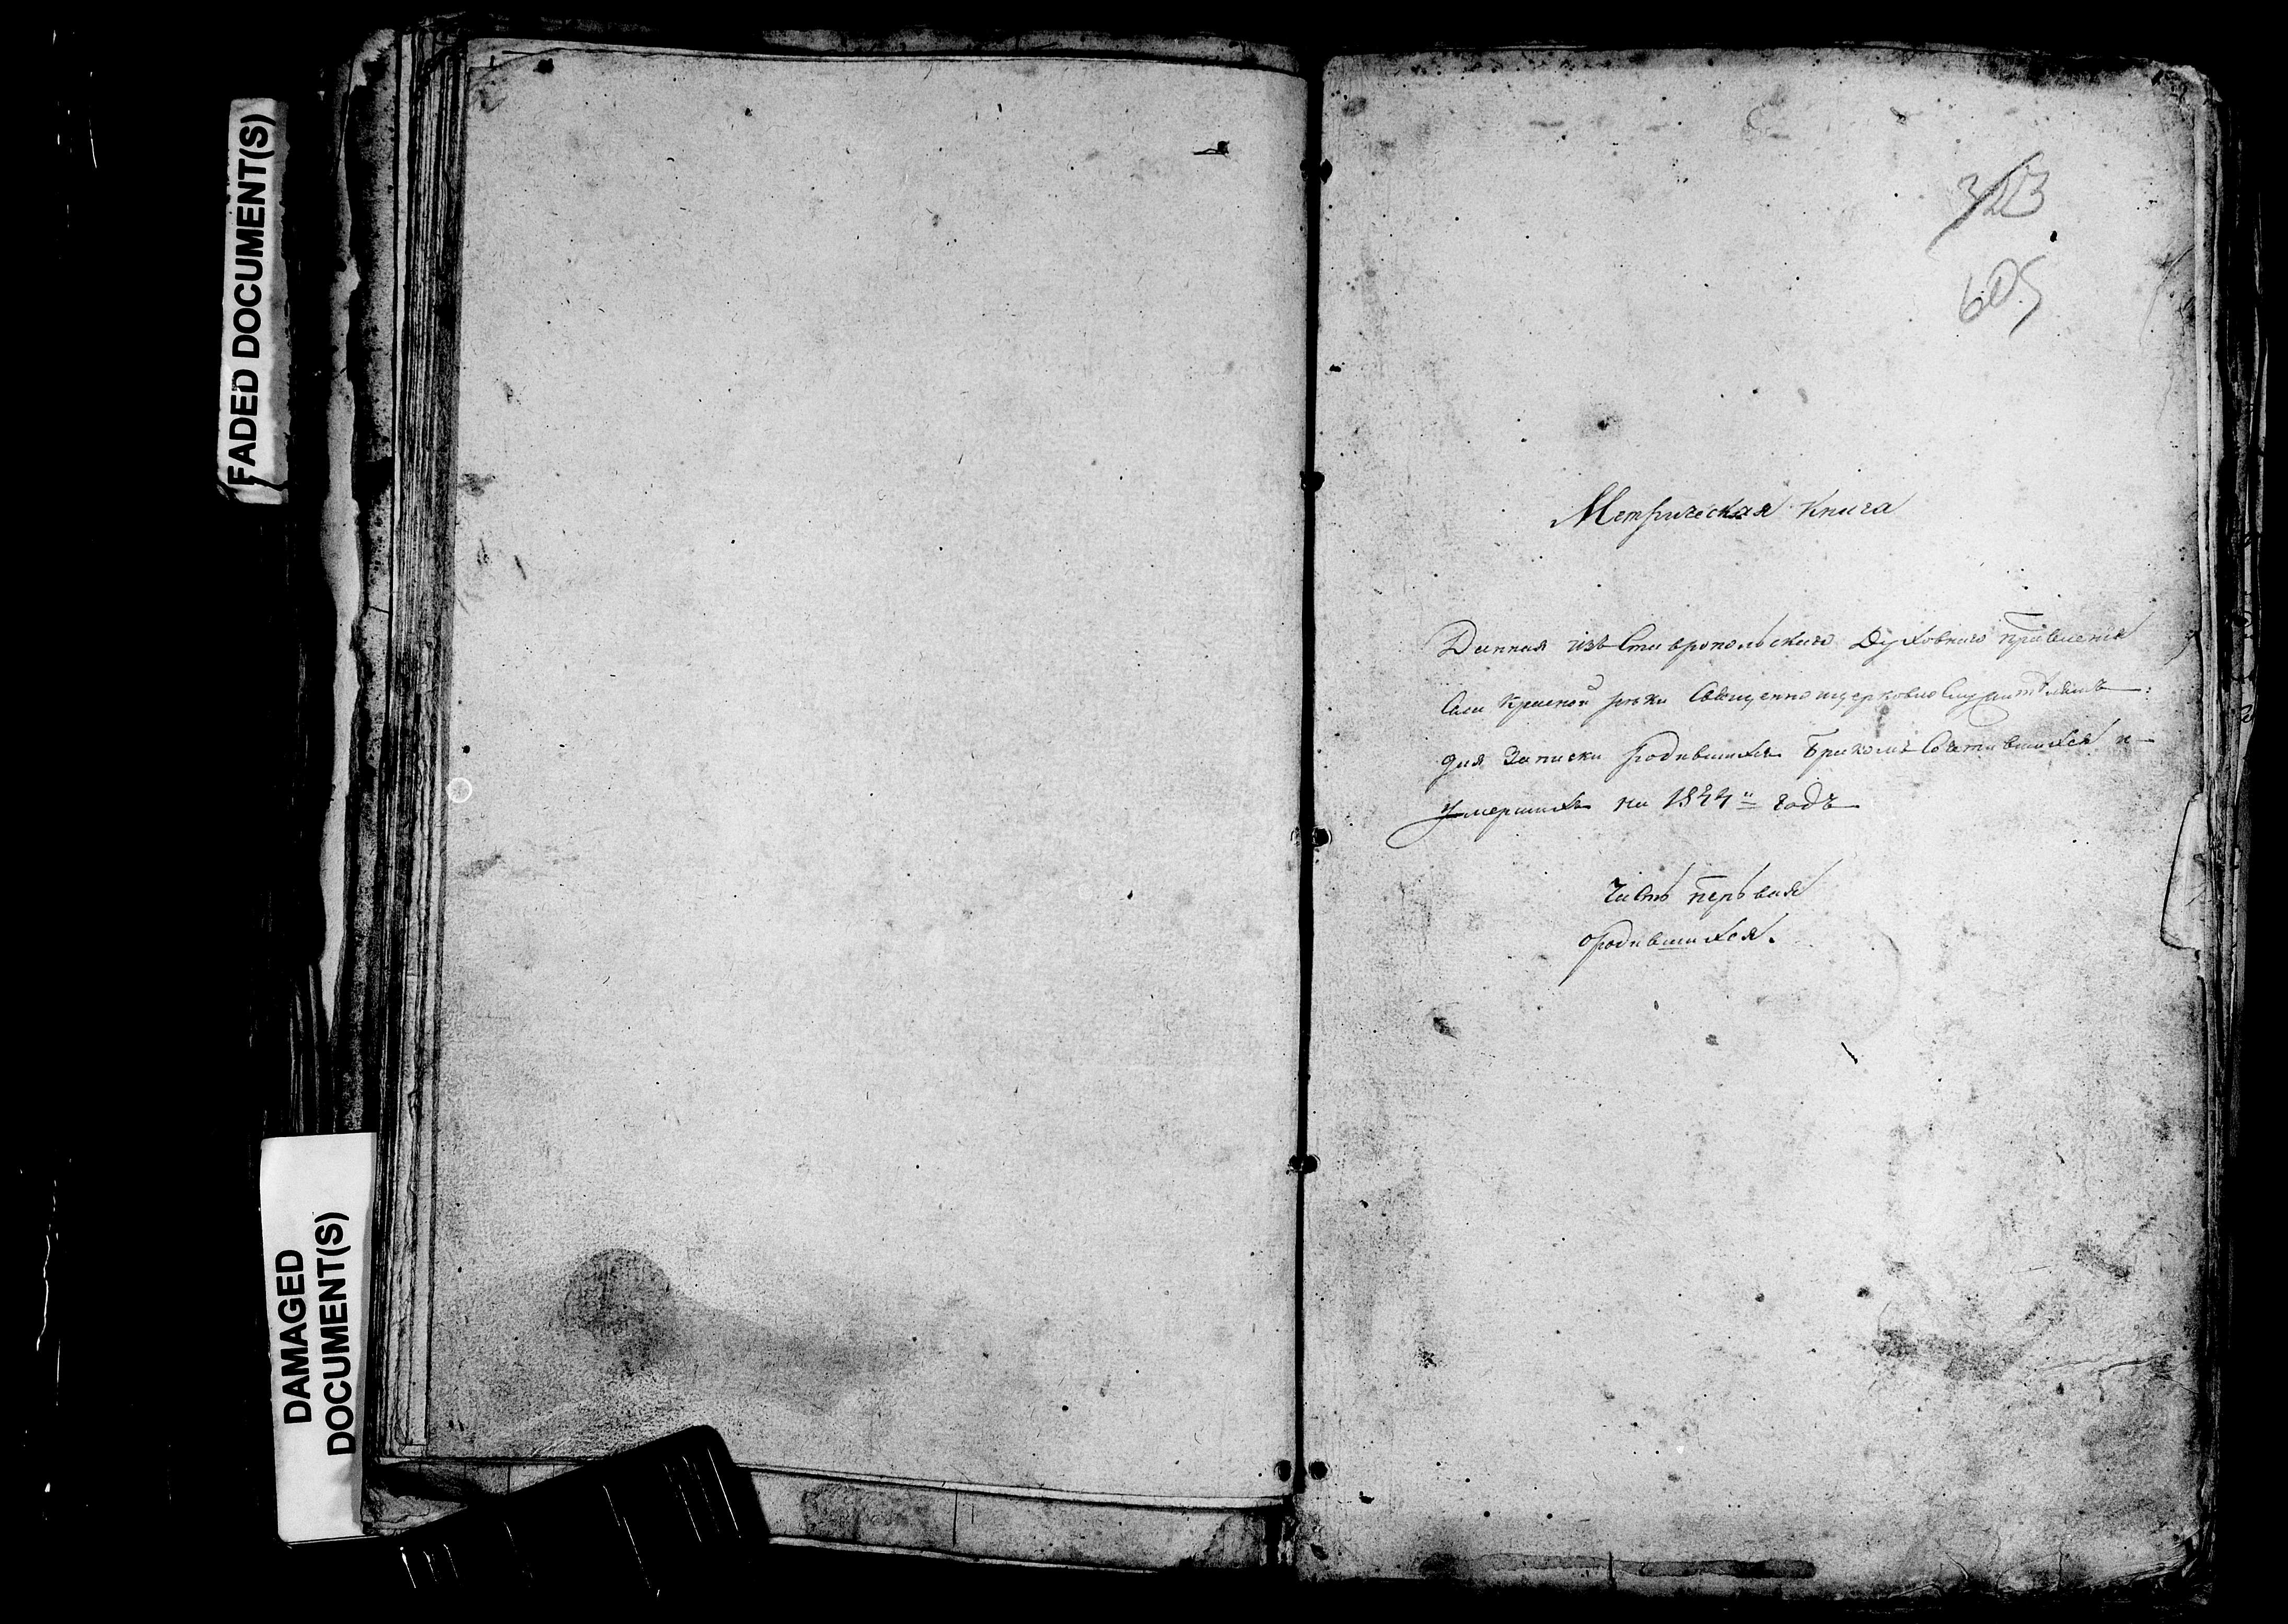 FADED DOCUMENT(S)
DAMAGED
DOCUMENT(S)
605
Метрическая Книга
Данная изъ Ставропольскаго Духовнаго правленія
Села Красной рѣки Священноицерковнослужителямъ
для Записки родившихся Бракомъ Сочетавшихся и
умершихъ на 1844й годъ
Часть первая
о родившихся.